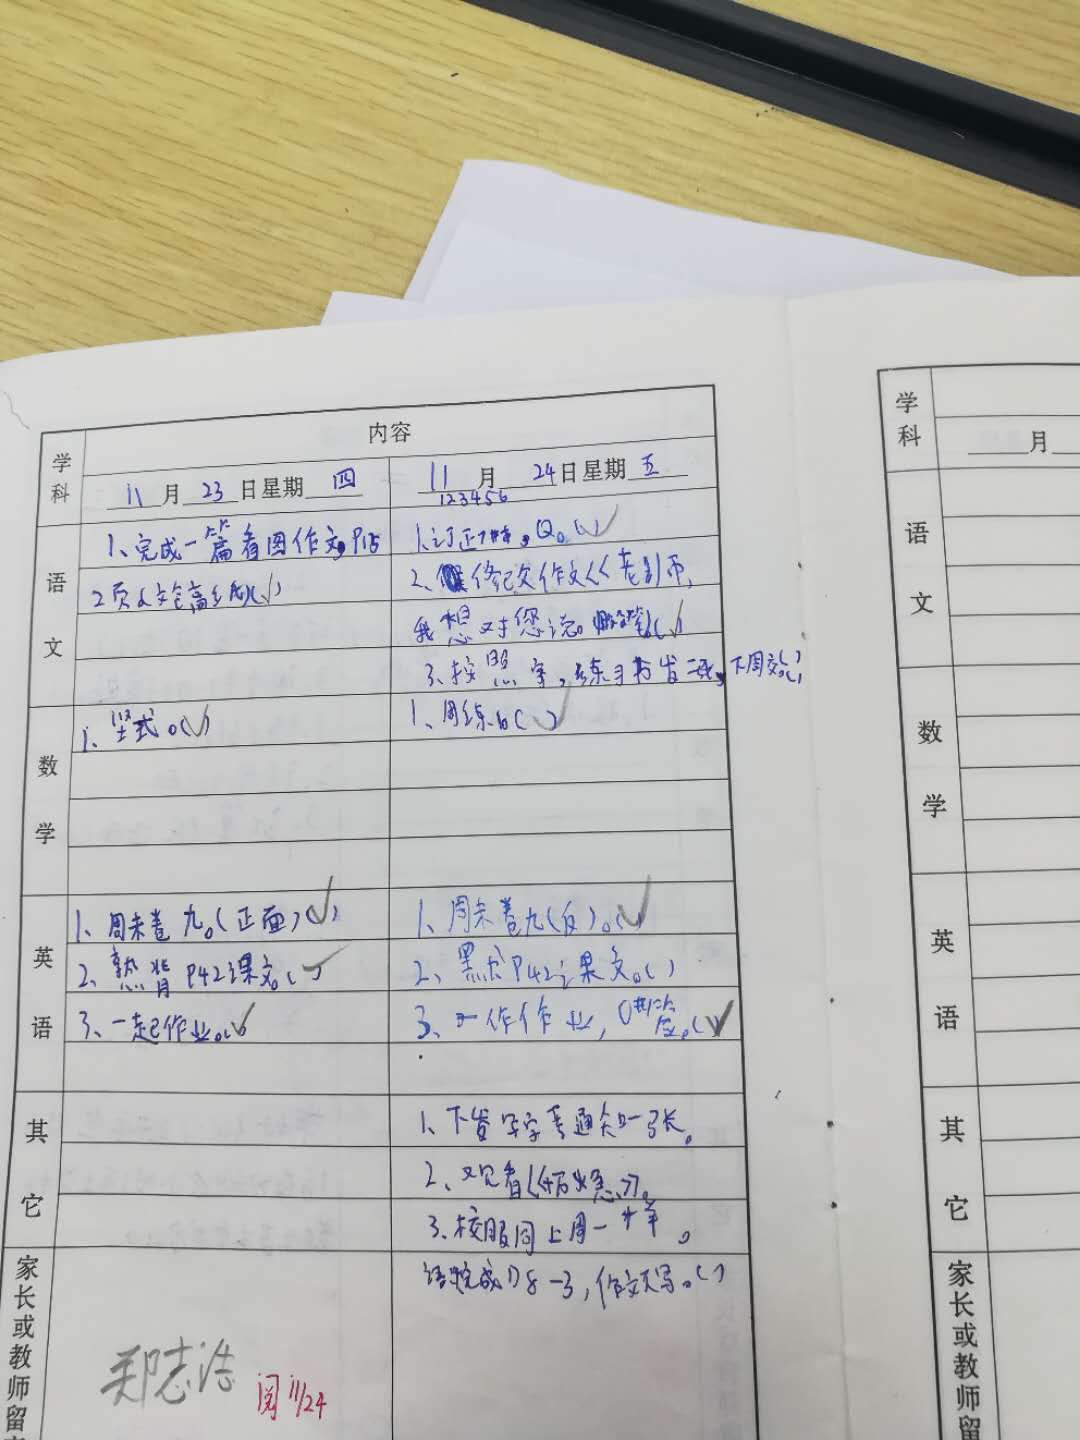 学科
内容
11月23日星期四
11月24日星期五
123456
语文
1、完成一篇看图作文,P15
2页
1、订正
2、作文《老师,
我想对您说。
3、按照 ,练习 下周交。( )
数学
1、竖式。(√)
1、周练。(√)
英语
1、周末卷九。(正面)(√)
2、熟背P42课文。(√)
3、一起作业。(√)
1、周末卷九(反)。(√)
2、默 P42课文。( )
3、一 作作业,
其它
1、下发写字 通知一张。
2、观看
3、校服同上周一样。
完成 ,作文不写。( )
家长或教师留
郑志浩
阅 11/24
学科
月
语文
数学
英语
其它
家长或教师留